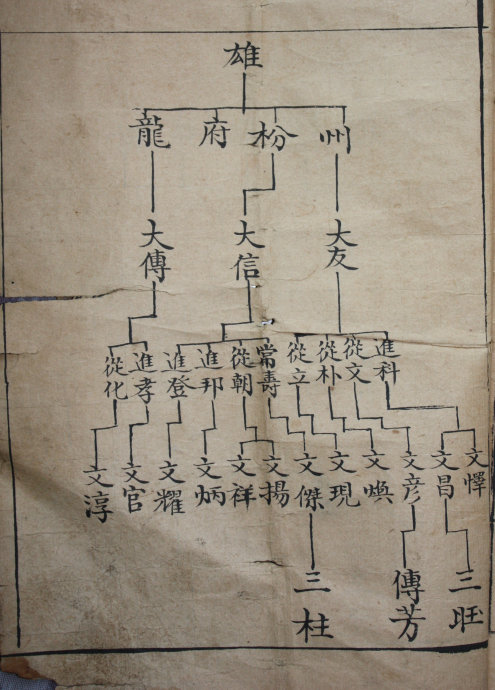 雄
州
枌
府
龍
大友
大信
大傳
進科
從文
從朴
從立
常壽
從朝
進邦
進登
進孝
從化
文懌
文昌
文彦
文喚
文現
文傑
文揚
文祥
文炳
文耀
文官
文淳
三旺
傳芳
三柱